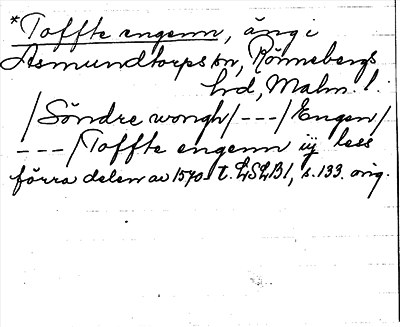 *Toffte engenn, äng i
Asmundtorps sn, Rönnebergs
hd, Malm. l.
/Söndre wongh/ --- / Engen /
--- / Toffte engenn iij less
förra delen av 1570-t. LSLB1, s. 133. orig.